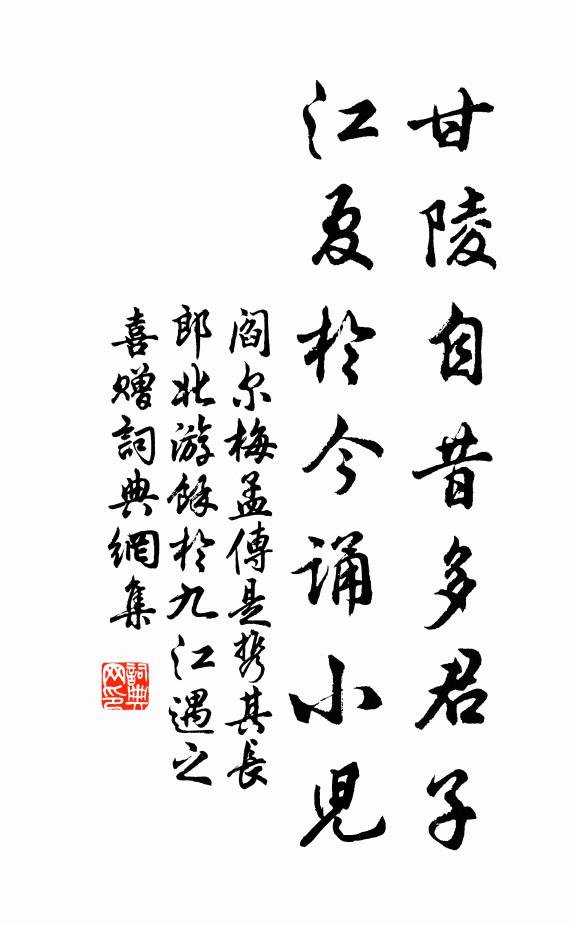 甘陵自昔多君子
江夏於今诵小児
阎尔梅孟傳是携其長
郎北游餘於九江遇之
喜赠詞典網集
詞典
网印